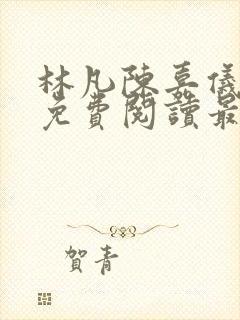 林凡陳嘉儀
免費閱讀最
賀青